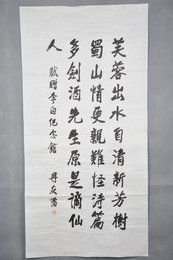 芙蓉出水自清新芳樹
蜀山情更親難怪詩篇
多劍酒先生原是謫仙
人
敬贈李白紀念館